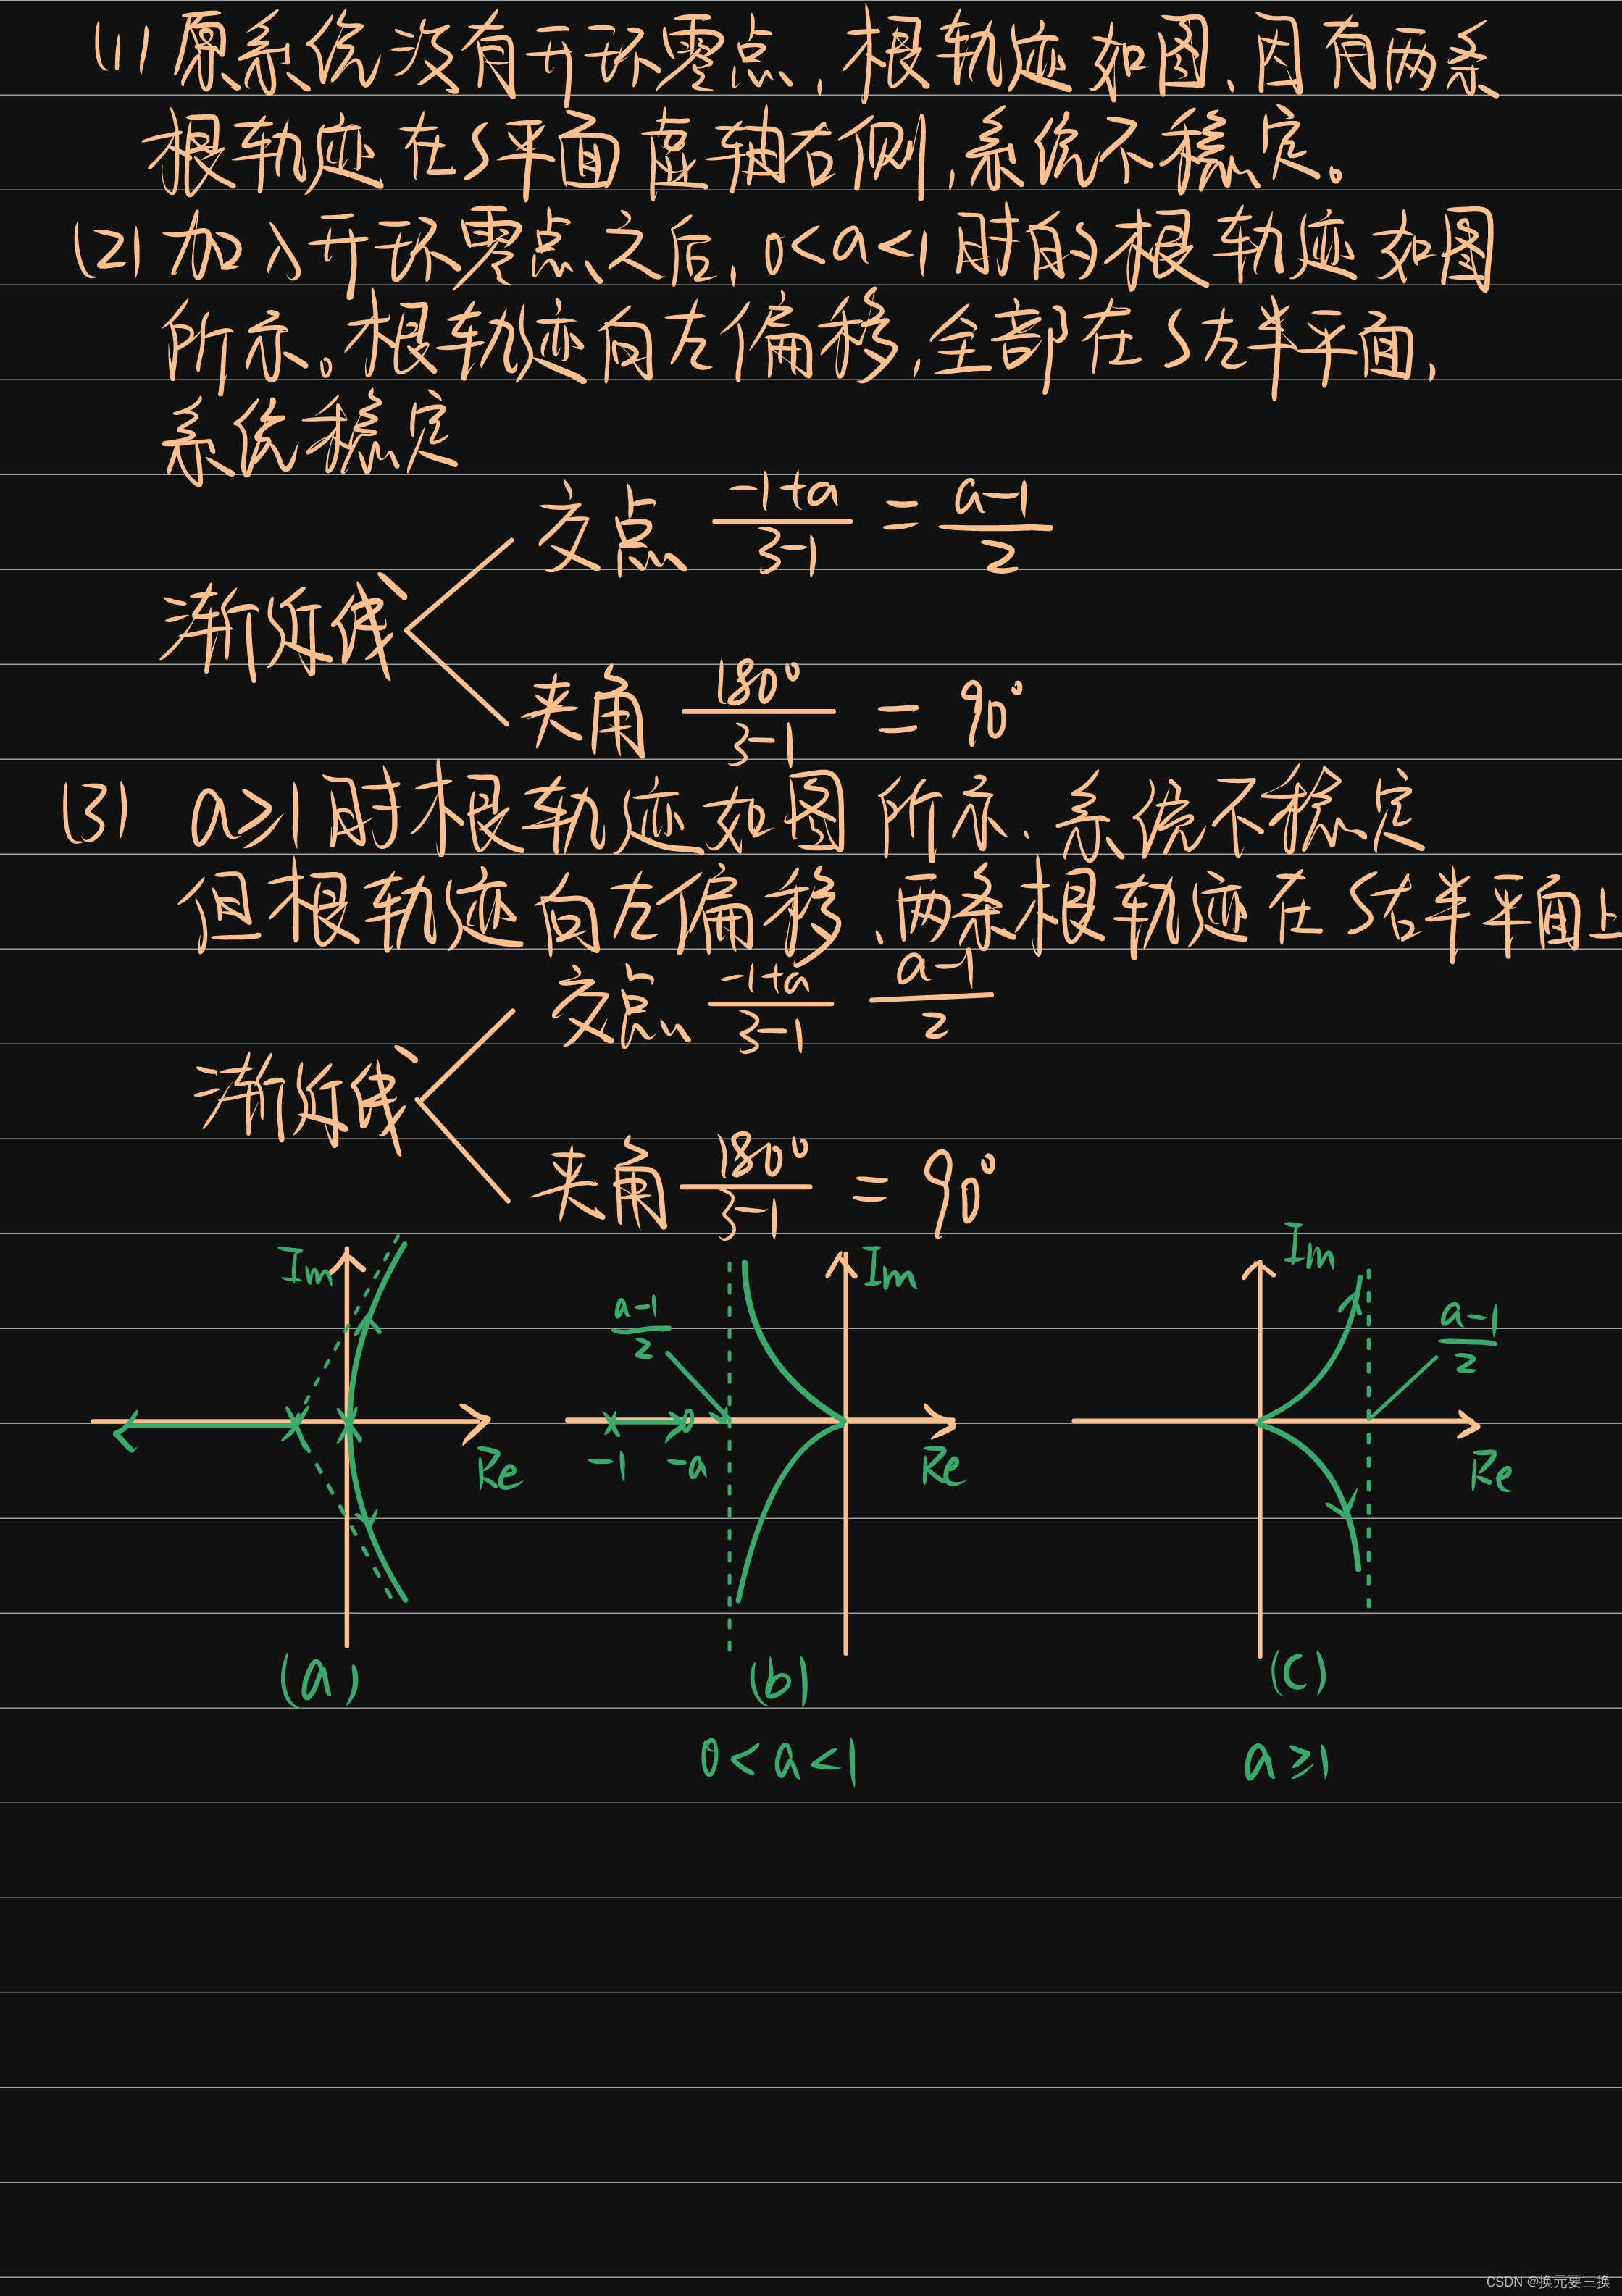 (1) 原系统没有开环零点,根轨迹如图、因有两条
根轨迹在S平面虚轴右侧,系统不稳定。
(2) 加入开环零点之后,0<a<1时的根轨迹如图
所示。根轨迹向左偏移,全部在S左半平面,
系统稳定
交点 \frac{-1+a}{3-1} = \frac{a-1}{2}
渐近线
夹角 \frac{180°}{3-1} = 90°
(3) a≥1时根轨迹如图所示.系统不稳定
但根轨迹向左偏移、两条根轨迹在S右半平面上
交点 \frac{-1+a}{3-1} \frac{a-1}{2}
渐近线
夹角 \frac{180°}{3-1} = 90°
Im
Re
(a)
\frac{a-1}{2}
Im
-1
-a
Re
(b)
0<a<1
Im
\frac{a-1}{2}
Re
(c)
a≥1
CSDN @换元要三换